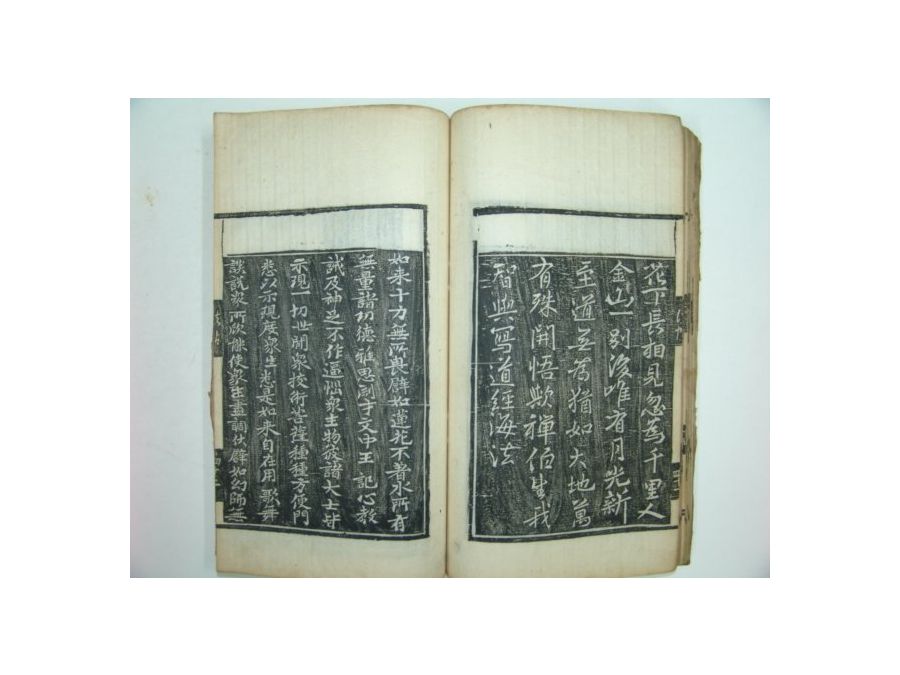 花下長相見忽爲千里人
金山一別後唯有月光新
至道無爲猶如大地萬
有殊開悟歟禪伯生我
智與寫道經海法
如来十力無所畏譬如蓮花不著水所有
無量諸功德雅思淵才文中王記心教
誡及神足示作逼惱衆生物彼諸大士皆
示現一切世間衆技術菩薩種種方便門
悉以示現度衆生悉是如来自在用歌舞
談說衆所欣能使衆生盡調伏譬如幻師無